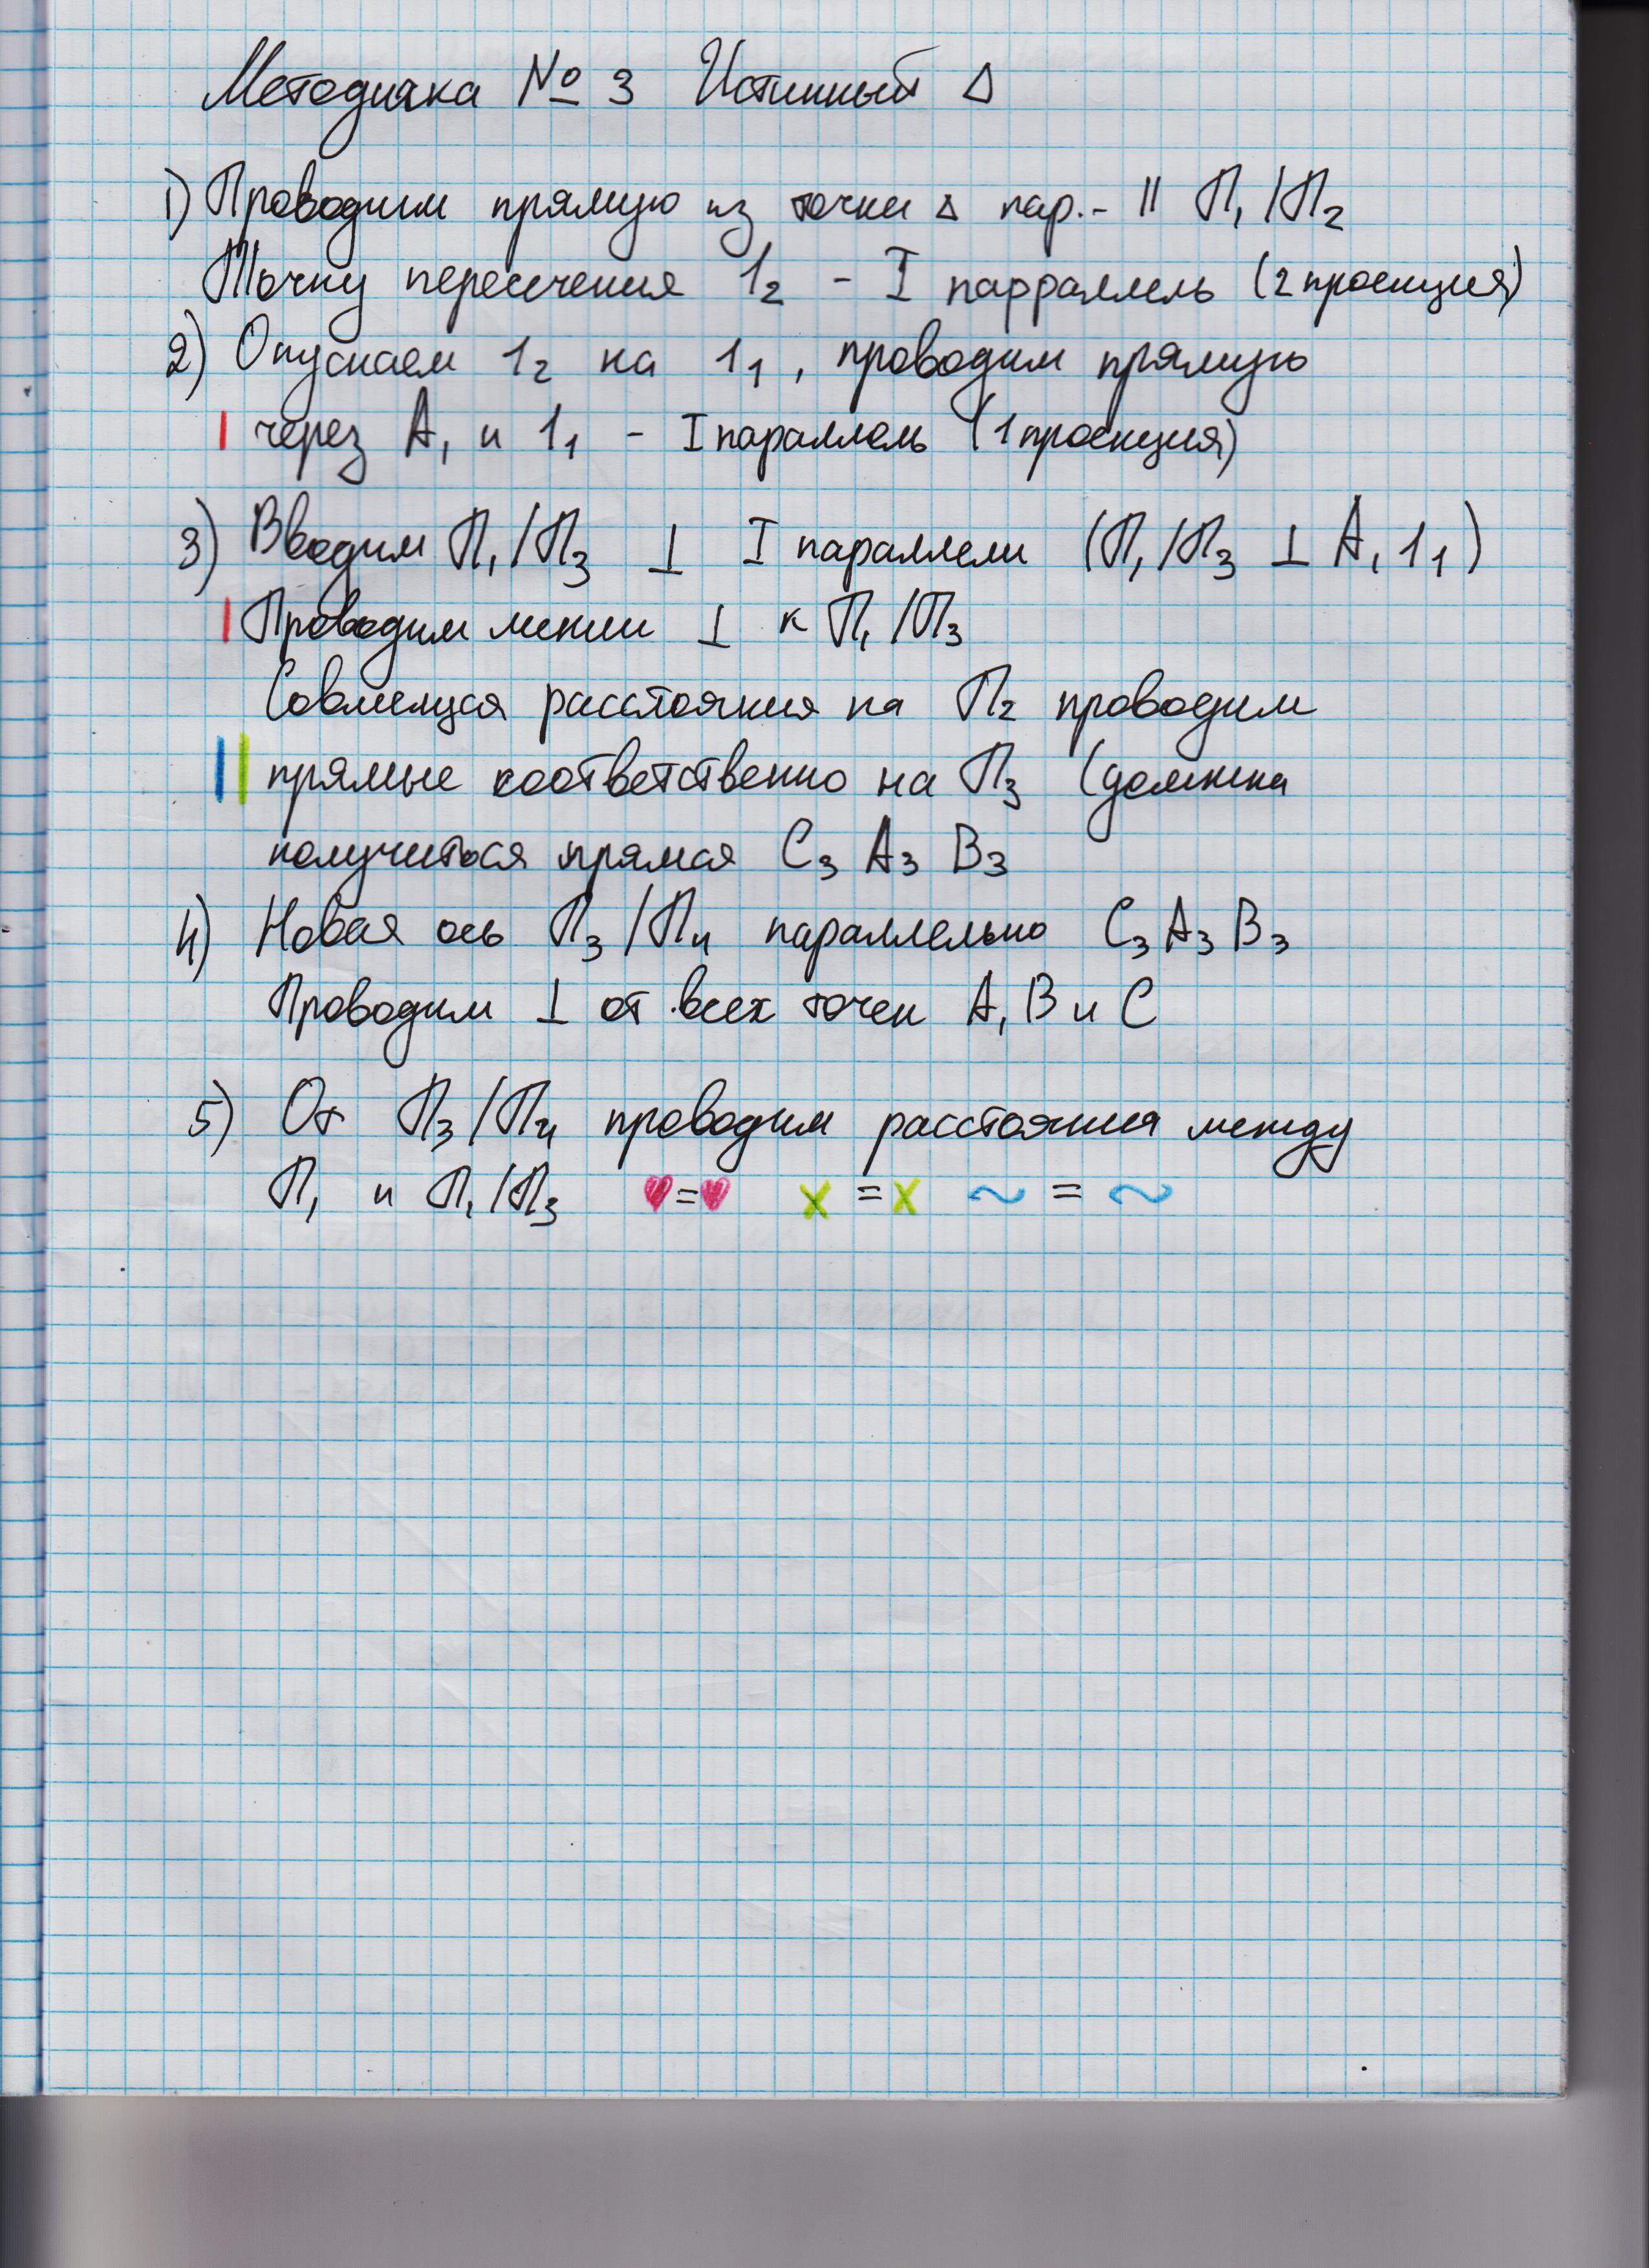 Методика № 3 Истинный Δ
1) Проводим прямую из точки Δ пар.- || П₁/П₂
Точку пересечения 1₂ - I парраллель (2 проекция)
2) Опускаем 1₂ на 1₁, проводим прямую
через А₁ и 1₁ - I параллель (1 проекция)
3) Вводим П₁/П₃ ⊥ I параллели (П₁/П₃ ⊥ А₁ 1₁)
Проводим линии ⊥ к П₁/П₃
расстояния на П₂ проводим
прямые соответственно на П₃ (должна
получиться прямая С₃ А₃ В₃
4) Новая ось П₃/П₄ параллельно С₃ А₃ В₃
Проводим ⊥ от всех точек А, В и С
5) От П₃/П₄ проводим расстояния между
П₁ и П₁/П₃ ♥=♥ х = х ~ = ~